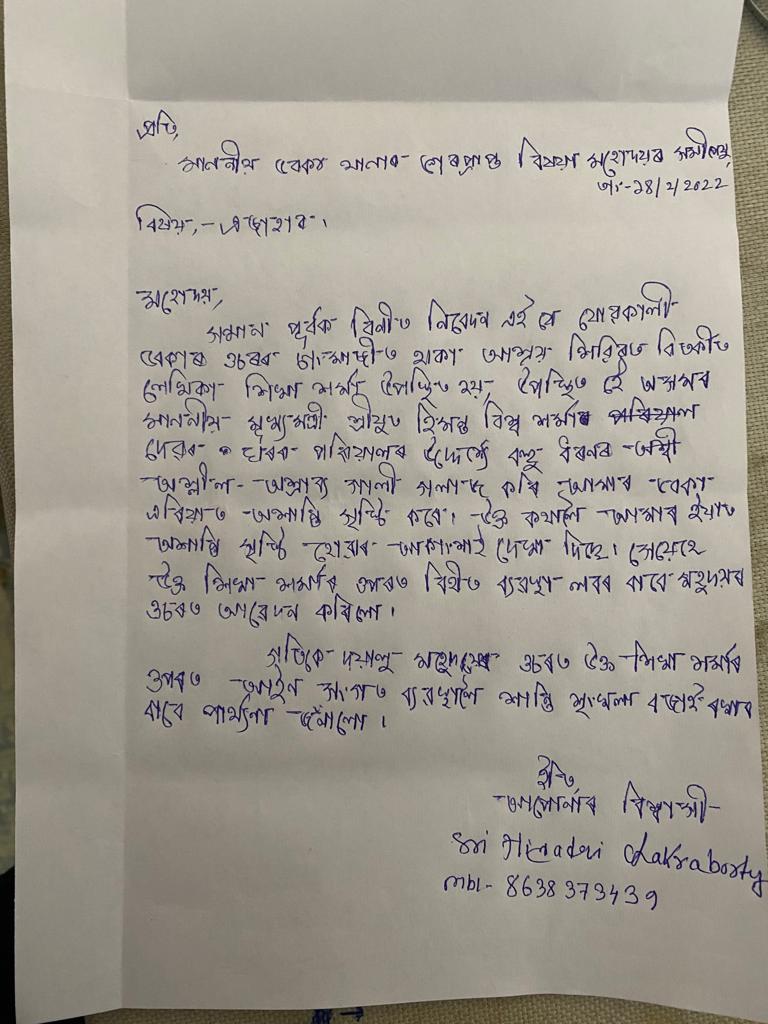 প্ৰতি,
মাননীয় বেকা থানাৰ ভাৰপ্ৰাপ্ত বিষয়া মহোদয়ৰ সমীপেষু,
তাং-18/2/2022
বিষয়,- এজাহাৰ।
মহোদয়,
সন্মান পূৰ্বক বিনীত নিবেদন এই যে যোৱাকালী
ওচৰৰ থকা আশ্ৰয় শিবিৰত বিতৰ্কীত
লেখিকা শিখা শৰ্মা উপস্থিত হয়, উপস্থিত হৈ অসমৰ
মাননীয় মুখ্যমন্ত্ৰী শ্ৰীযুত হিমন্ত বিশ্ব শৰ্মাৰ পৰিয়াল
দেৱৰ ঘৰৰ পৰিয়ালৰ উদ্দেশ্যে বহু ধৰণৰ
অশ্লীল- অশ্ৰাব্য গালী গলাজ কৰি আমাৰ বেকা
এৰিয়াত অশান্তি সৃষ্টি কৰে। উক্ত কথালৈ আমাৰ ইয়াত
অশান্তি সৃষ্টি হোৱাৰ আশংকাই দেখা দিছে। সেয়েহে
উক্ত শিখা শৰ্মাৰ ওপৰত বিহীত ব্যৱস্থা লবৰ বাবে মহুদয়ৰ
ওচৰত আবেদন কৰিলো।
গতিকে দয়ালু মহুদয়ৰ ওচৰত উক্ত শিখা শৰ্মাৰ
ওপৰত আইন সংগত ব্যৱস্থালৈ শান্তি শৃংখলা বজাই ৰখাৰ
বাবে পাৰ্থ্যনা জনালো।
ইতি
আপোনাৰ বিশ্বাসী
Sri Hiradri Chakraborty
mbl- 8638373439